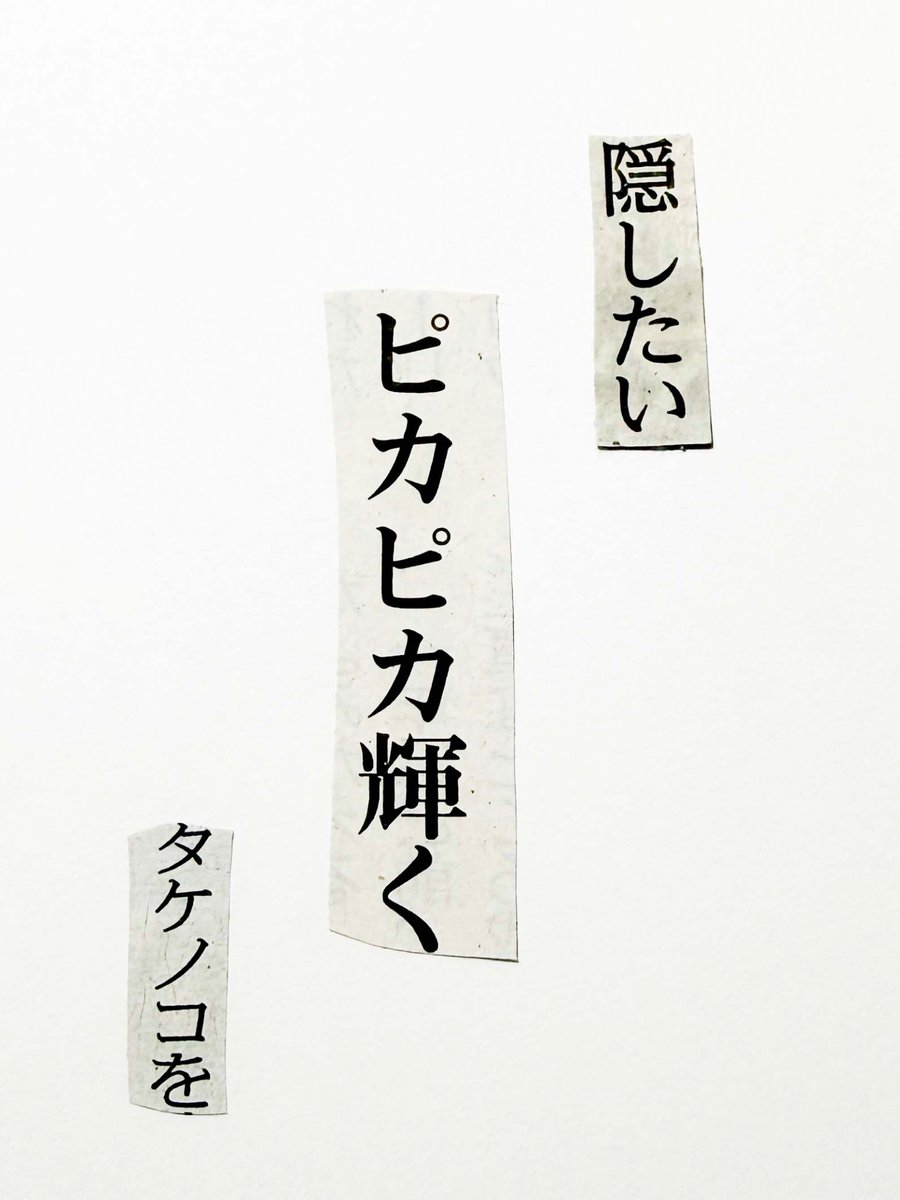 隠したい
ピカピカ輝く
タケノコを